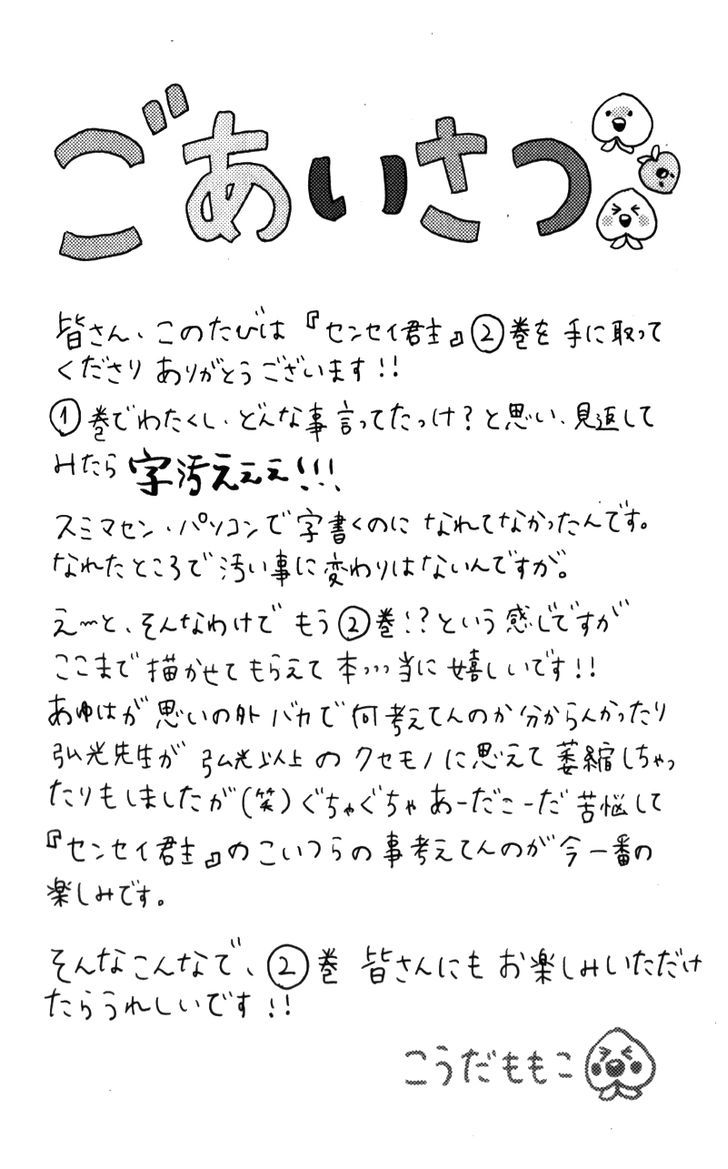 ごあいさつ
皆さん、このたびは『センセイ君主』②巻を手に取って
くださり ありがとうございます!!
①巻でわたくし、どんな事言ってたっけ?と思い、見返して
みたら 字汚えぇぇ!!!
スミマセン、パソコンで字書くのに なれてなかったんです。
なれたところで汚い事に変わりはないんですが。
え〜と、そんなわけで もう②巻!?という感じですが
ここまで描かせてもらえて 本っっっ当に 嬉しいです!!
あゆはが思いの外 バカで何考えてんのか分からんかったり
弘光先生が 弘光以上の クセモノに思えて 萎縮しちゃっ
たりもしましたが(笑)ぐちゃぐちゃ あーだこーだ 苦悩して
『センセイ君主』のこいつらの事考えてんのが今一番の
楽しみです。
そんなこんなで、②巻 皆さんにも お楽しみいただけ
たらうれしいです!!
こうだももこ